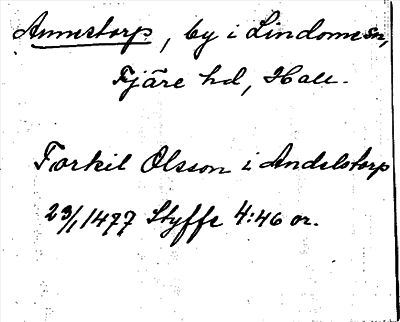 Annestorp, by i Lindome sn,
Fjäre hd, Hall.
Torkil Olsson i Andelstorp
23/1 1477 Styffe 4:46 or.